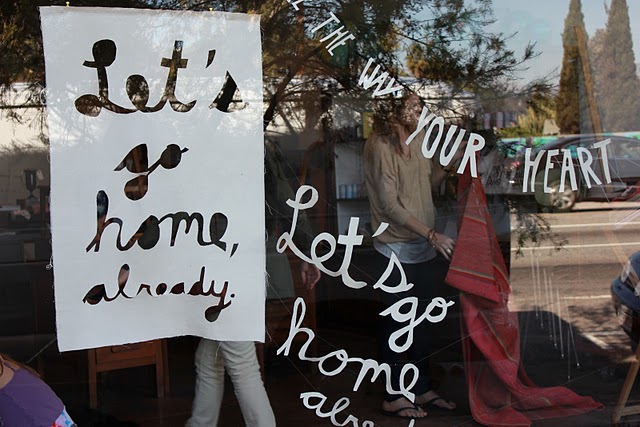 Let's
go
home,
already.
THE WAY YOUR HEART
Let's
go
home